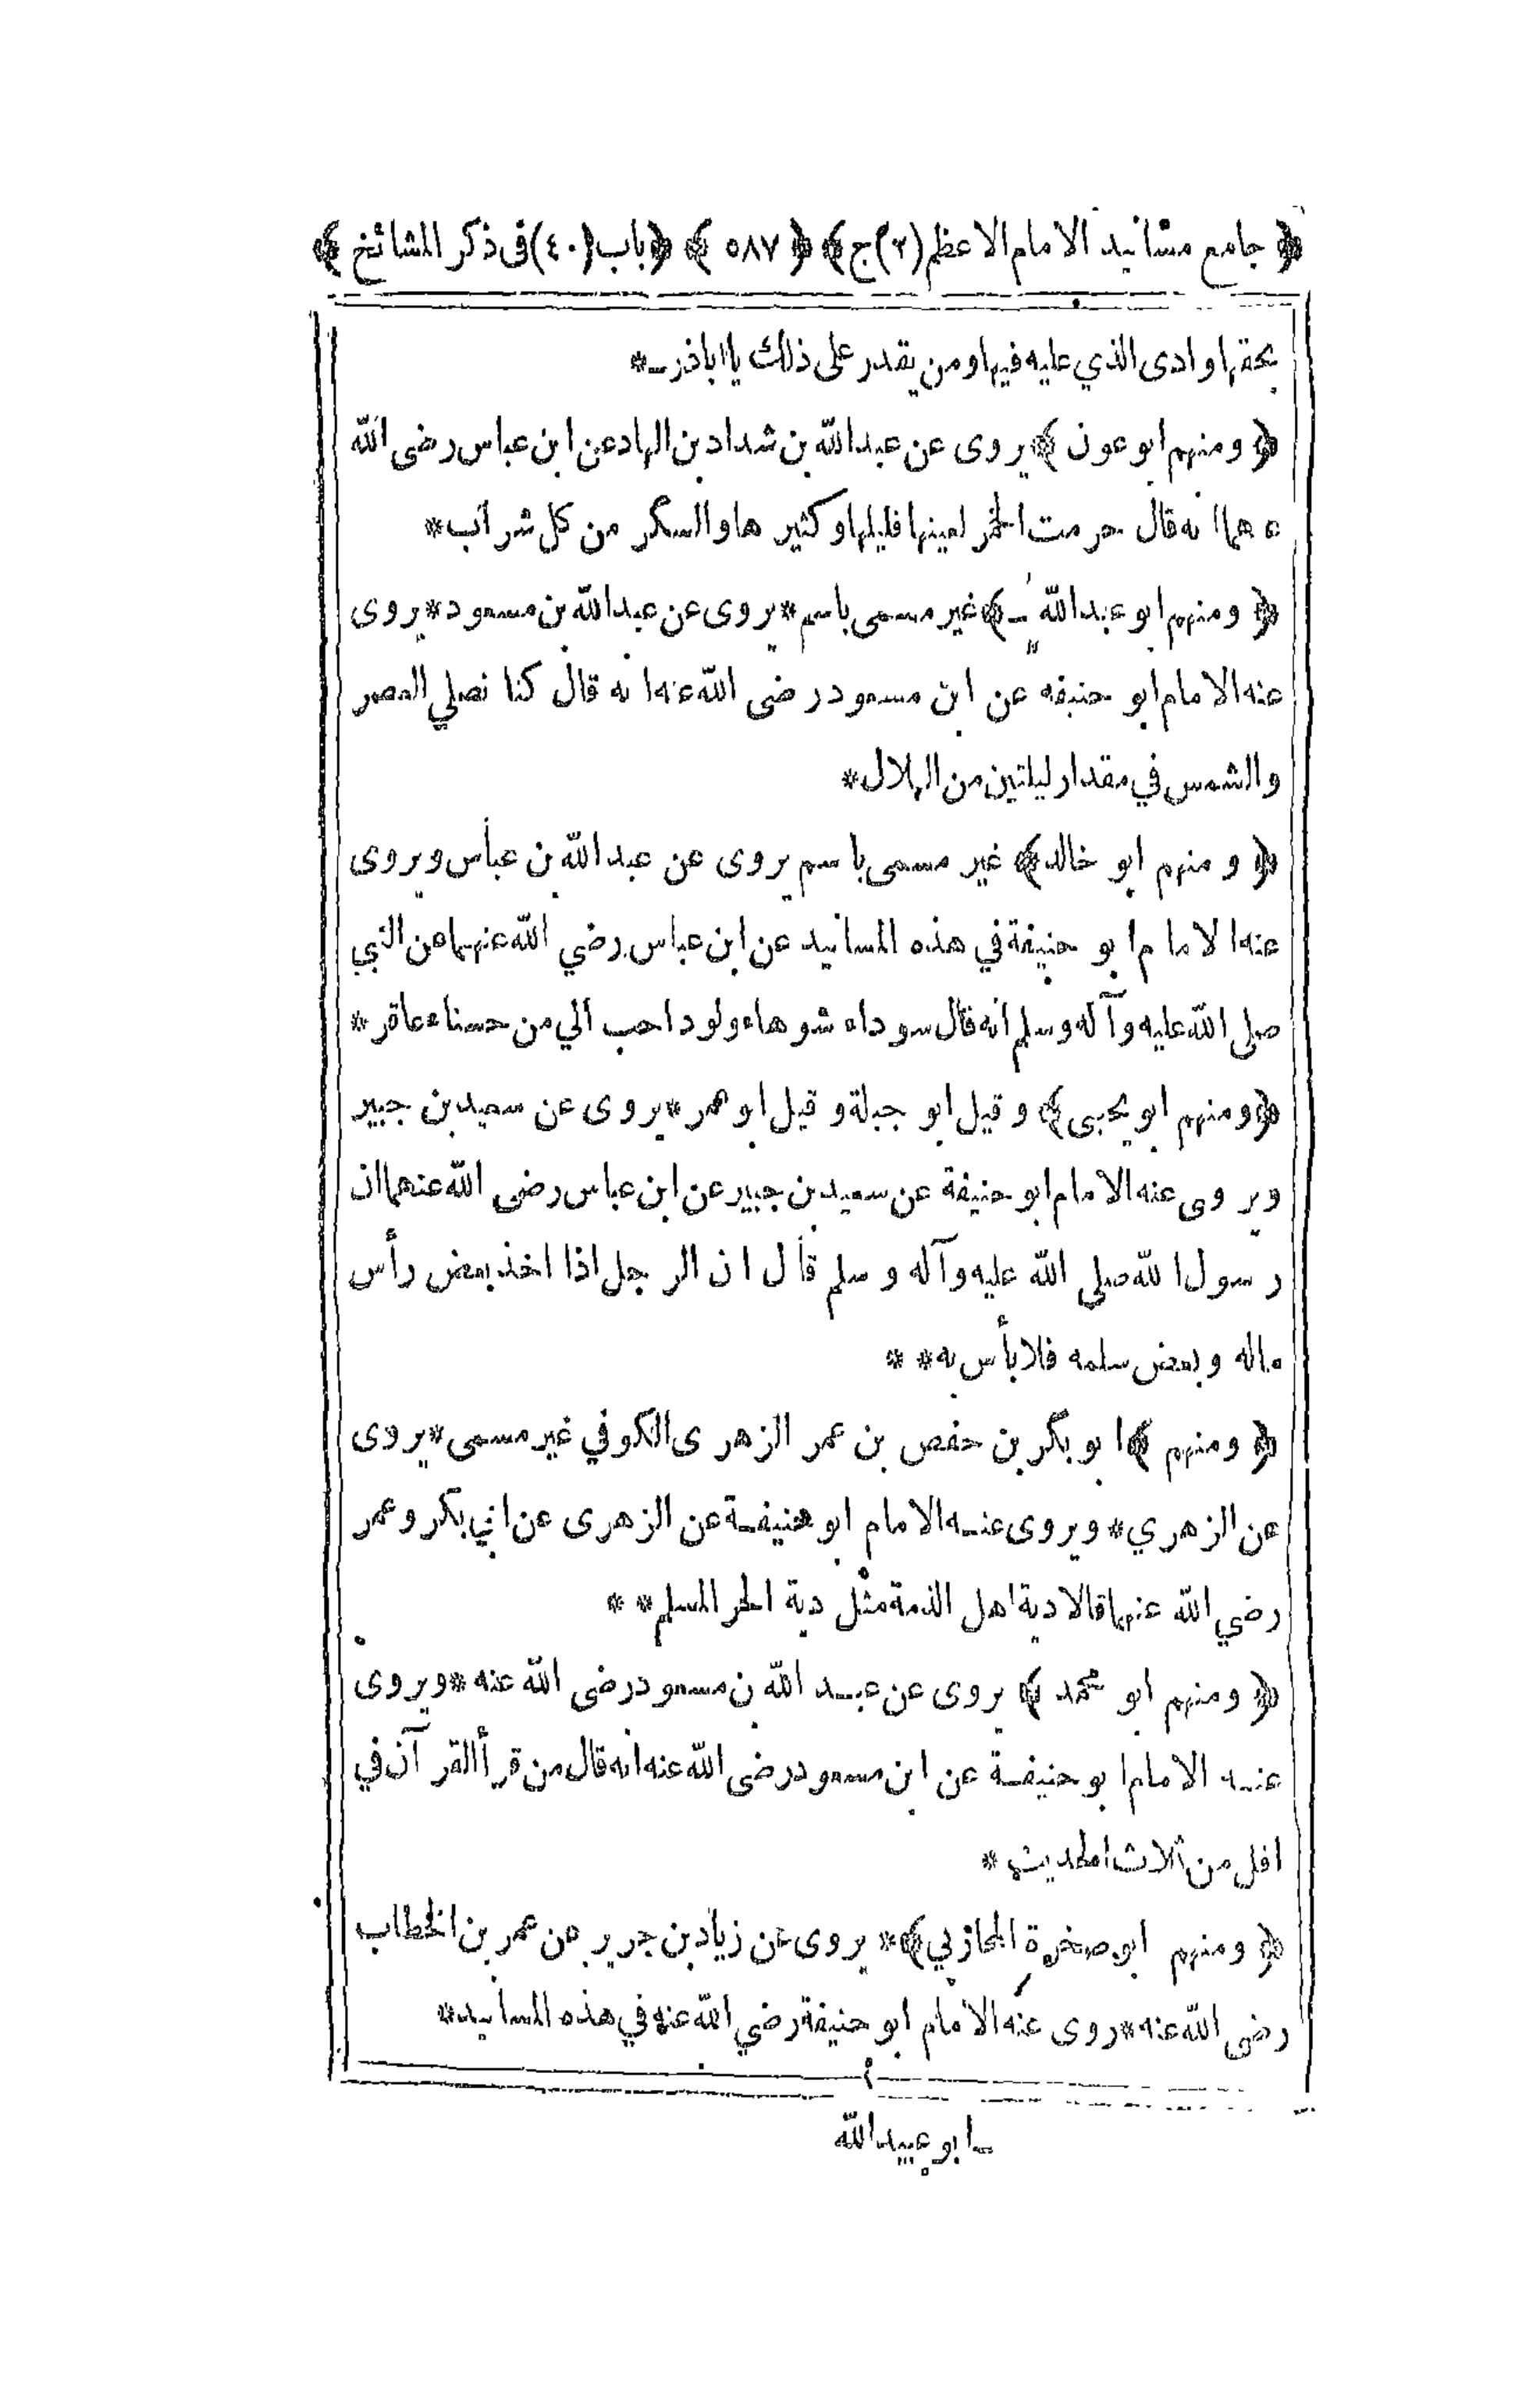 ﴿ جامع مسانيد الامام الاعظم (٢) ج ﴾ ﴿ ٥٨٧ ﴾ ﴿ باب (٤٠) فى ذكر المشائخ ﴾
بحقها وادى الذي عليه فيها ومن يقدر على ذلك يا اباذر ـ*
﴿ ومنهم ابو عون ﴾ يروى عن عبدالله بن شداد بن الهاد عن ابن عباس رضى الله
عنهما انه قال حرمت الخمر لعينها قليلها وكثيرها والسكر من كل شراب *
﴿ ومنهم ابو عبدالله ـ ﴾ غير مسمى باسم * يروى عن عبدالله بن مسعود * يروى
عنه الامام ابو حنيفه عن ابن مسعود رضى الله عنه انه قال كنا نصلي العصر
والشمس في مقدار ليلتين من الهلال *
﴿ ومنهم ابو خالد ﴾ غير مسمى باسم يروى عن عبدالله بن عباس ويروى
عنه الامام ابو حنيفة في هذه المسانيد عن ابن عباس رضي الله عنهما عن النبي
صلى الله عليه وآله وسلم انه قال سوداء شوهاء ولود احب الي من حسناء عاقر *
﴿ ومنهم ابو يحيى ﴾ وقيل ابو جبلة وقيل ابو عمر * يروى عن سعيد بن جبير
ويروى عنه الامام ابو حنيفة عن سعيد بن جبير عن ابن عباس رضى الله عنهما ان
رسول الله صلى الله عليه وآله وسلم قال ان الرجل اذا اخذ بعض رأس
ماله وبعض سلمه فلا بأس به * *
﴿ ومنهم ﴾ ابو بكر بن حفص بن عمر الزهرى الكوفي غير مسمى * يروى
عن الزهري * ويروى عنه الامام ابو حنيفة عن الزهرى عن ابي بكر وعمر
رضي الله عنهما قالا دية اهل الذمة مثل دية الحر المسلم * *
﴿ ومنهم ابو محمد ﴾ يروى عن عبد الله بن مسعود رضى الله عنه * ويروى
عنه الامام ابو حنيفة عن ابن مسعود رضى الله عنه انه قال من قرأ القرآن في
اقل من ثلاث الحديث *
﴿ ومنهم ابو صخرة المحازبي ﴾ * يروى عن زياد بن جرير عن عمر بن الخطاب
رضى الله عنه * روى عنه الامام ابو حنيفة رضي الله عنه في هذه المسانيد *
ـ ابو عبيد الله